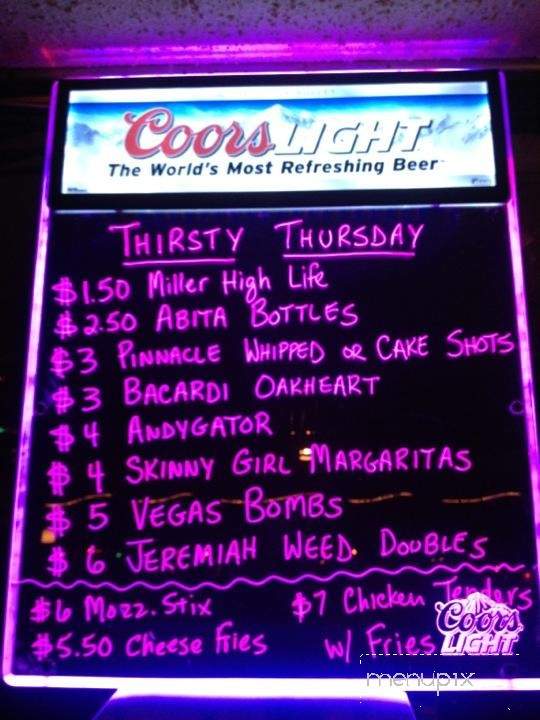 Coors LIGHT
The World's Most Refreshing Beer
THIRSTY THURSDAY
$1.50 Miller High Life
$2.50 ABITA BOTTLES
$3 PINNACLE WHIPPED OR CAKE SHOTS
$3 BACARDI OAKHEART
$4 ANDYGATOR
$4 SKINNY GIRL MARGARITAS
$5 VEGAS BOMBS
$6 JEREMIAH WEED DOUBLES
$6 Mozz. Stix
$5.50 Cheese Fries
$7 Chicken Tenders
w/ Fries
Coors
LIGHT
menupix